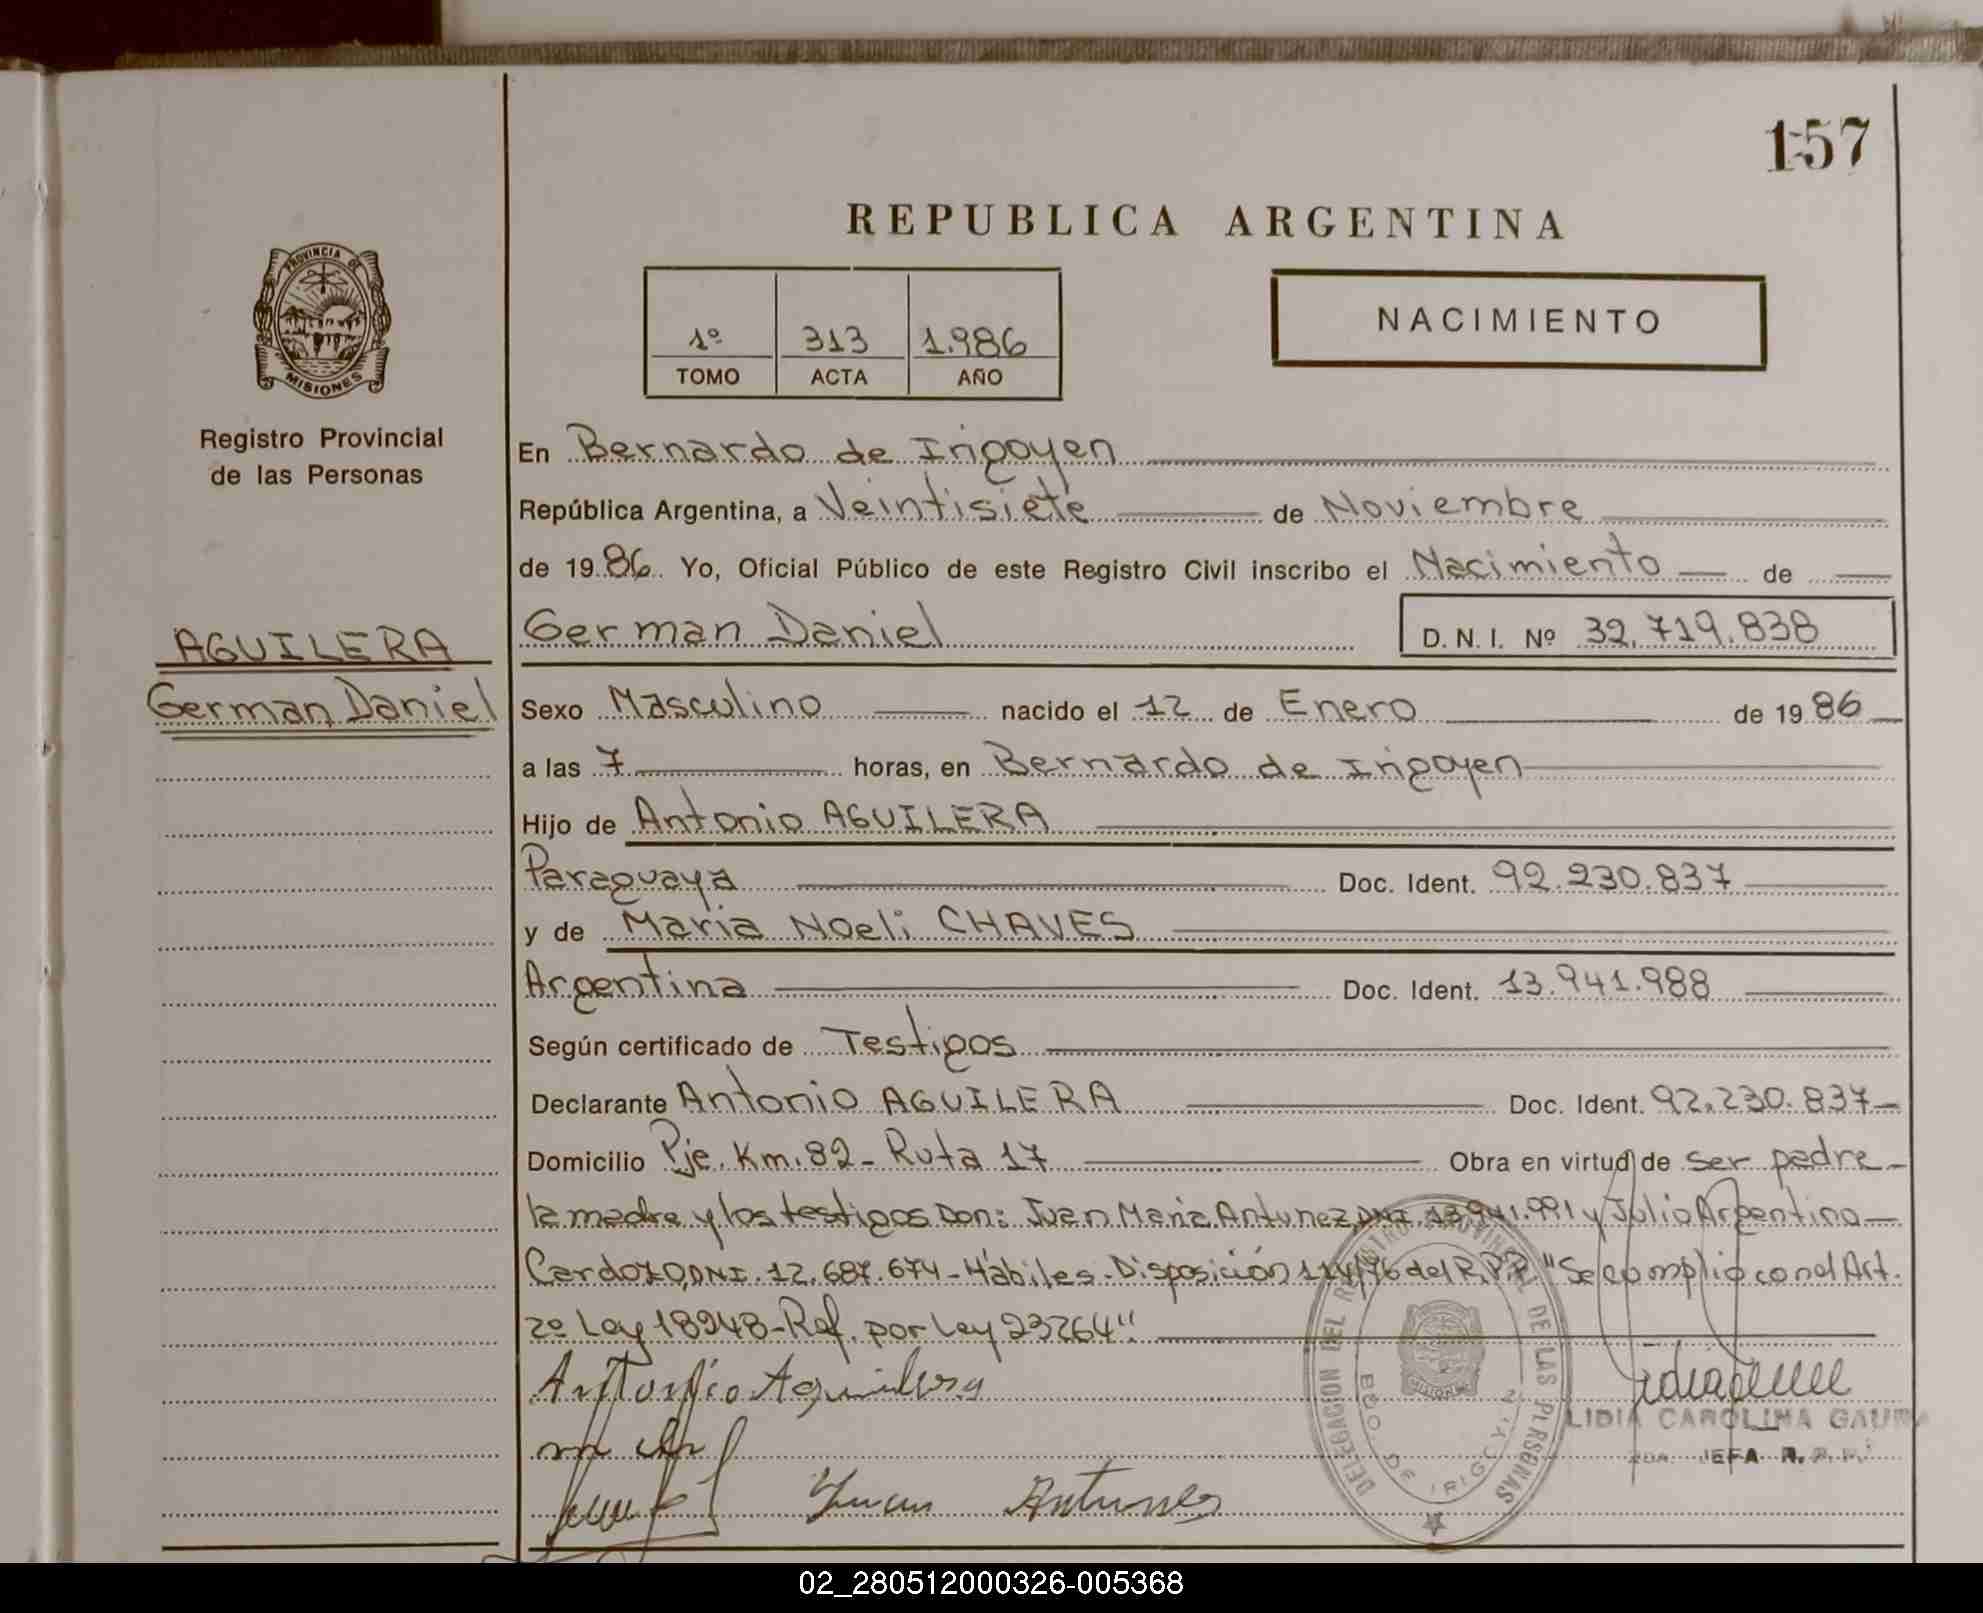 157
REPUBLICA ARGENTINA
PROVINCIA DE
MISIONES
Registro Provincial
de las Personas
1º 313 1.986
TOMO ACTA AÑO
NACIMIENTO
En Bernardo de Irigoyen
República Argentina, a Veintisiete de Noviembre
de 1986 Yo, Oficial Público de este Registro Civil inscribo el Nacimiento de
AGUILERA
German Daniel
German Daniel D. N. I. Nº 32.719.838
Sexo Masculino nacido el 12 de Enero de 1986
a las 7 horas, en Bernardo de Irigoyen
Hijo de Antonio AGUILERA
Paraguaya Doc. Ident. 92.230.837
y de Maria Noeli CHAVES
Argentina Doc. Ident. 13.941.988
Según certificado de Testigos
Declarante Antonio AGUILERA Doc. Ident. 92.230.837
Domicilio Pje. Km. 82 - Ruta 17 Obra en virtud de ser padre
la madre y los testigos Don: Juan Maria Antunez, DNI. 13.941.991 y Julio Argentino
Cardozo, DNI. 12.687.674 - Hábiles. Disposición 114/96 del R.P.P. "Se complió con el Art.
2º Ley 18948 - Ref. por Ley 23264".
Antonio Aguilera
Juan Antunes
DELEGACION DEL REGISTRO PROVINCIAL DE LAS PERSONAS
BDO. DE IRIGOYEN
MISIONES
LIDIA CAROLINA
JEFA R. P. P.
02_280512000326-005368